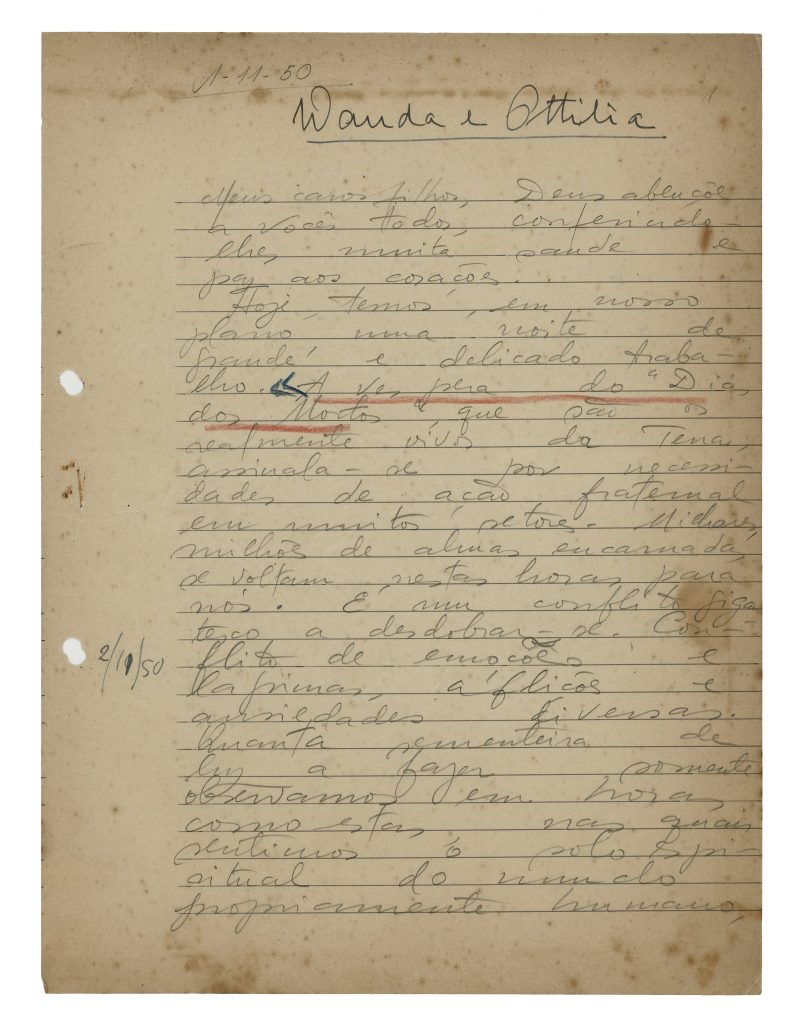 1-11-50
1
Wanda e Ottilia
Meus caros filhos, Deus abençõe
a vocês todos, conferindo-
lhes muita saude e
paz aos corações..
Hoje, temos, em nosso
plano uma noite de
grande e delicado traba-
lho. A vespera do "Dia
dos Mortos", que são os
realmente vivos da Terra,
assinala-se por necessi-
dades de ação fraternal
em muitos setores. Milhares,
milhões de almas encarnadas
se voltam nestas horas para
nós. É um conflito giga
tesco a desdobrar-se. Con-
2/11/50
flito de emoções e
lagrimas, aflições e
ansiedades diversas.
Quanta sementeira de
luz a fazer somente
observamos em horas
como estas, nas quais
sentimos o solo espi-
ritual do mundo
propriamente humano,